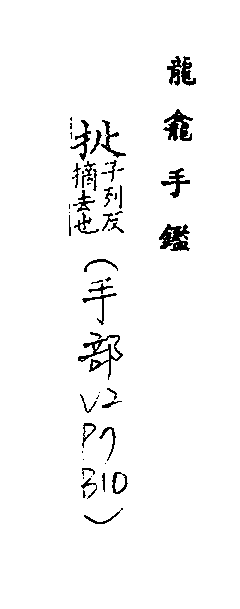 龍龕手鑑
子列反
摘去也
(手部V2P7B10)